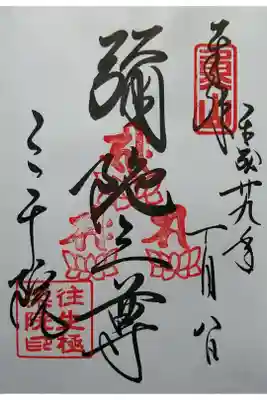 奉拝
平成廿九年
月八日
彌陀三尊
三千院
往生極楽院印